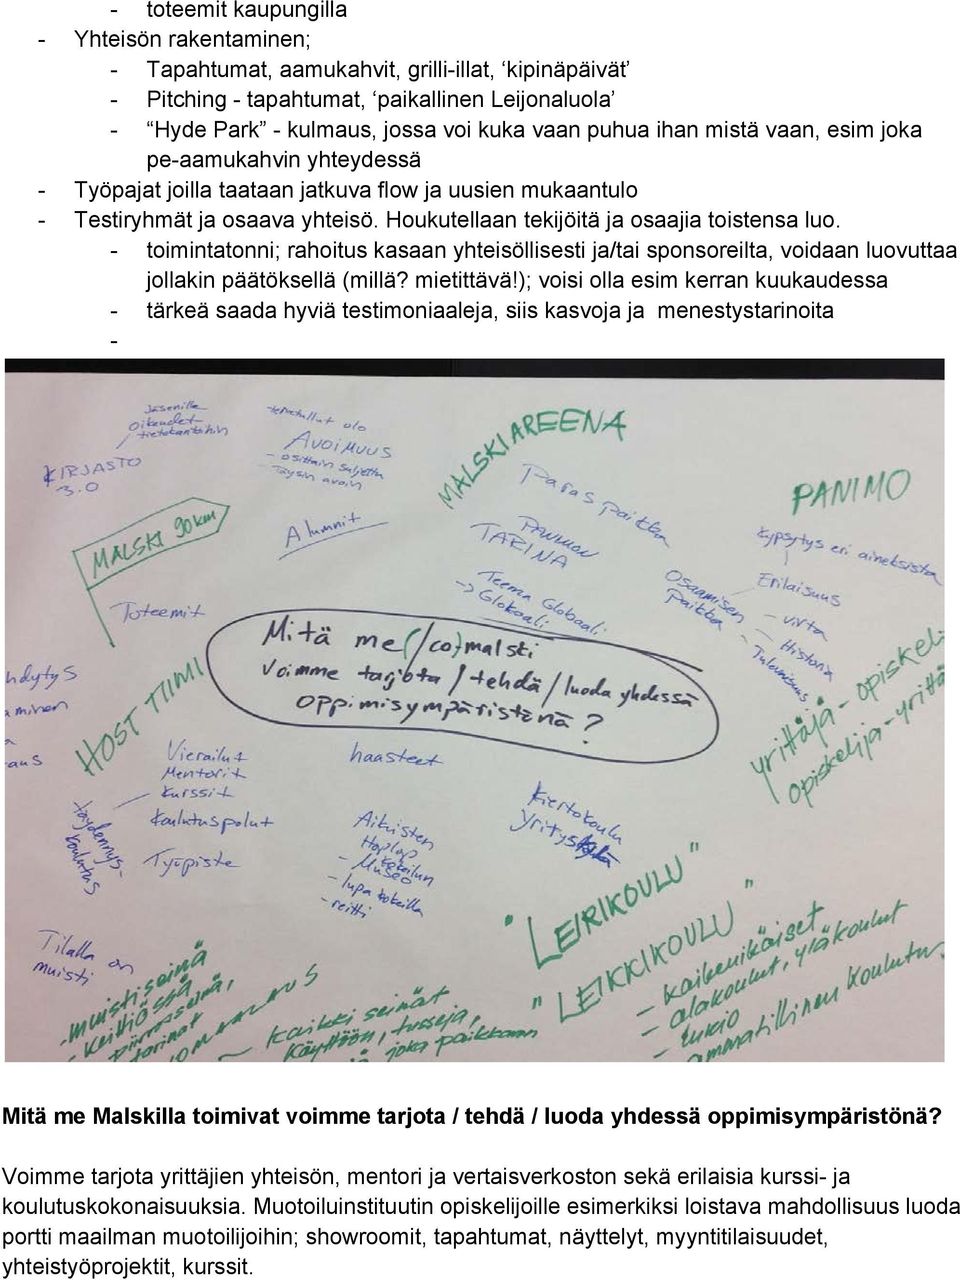 - toteemit kaupungilla
- Yhteisön rakentaminen;
- Tapahtumat, aamukahvit, grilli-illat, ‘kipinäpäivät’
- Pitching - tapahtumat, ‘paikallinen Leijonaluola’
- “Hyde Park” - kulmaus, jossa voi kuka vaan puhua ihan mistä vaan, esim joka
pe-aamukahvin yhteydessä
- Työpajat joilla taataan jatkuva flow ja uusien mukaantulo
- Testiryhmät ja osaava yhteisö. Houkutellaan tekijöitä ja osaajia toistensa luo.
- toimintatonni; rahoitus kasaan yhteisöllisesti ja/tai sponsoreilta, voidaan luovuttaa
jollakin päätöksellä (millä? mietittävä!); voisi olla esim kerran kuukaudessa
- tärkeä saada hyviä testimoniaaleja, siis kasvoja ja menestystarinoita
-
Jäsenille
oikeudet
tietokantoihin
KIRJASTO
3.0
olo
AVOIMUUS
- osittain suljettu
- täysin avoin
MALSKIAREENA
Paras paikka
PANIMO
kypsytys eri aineksista
Erilaisuus
- virta
- Historia
- Tulevaisuus
MALSKI 30km
Alumnit
PANIMON
TARINA
Teema Globaali
-> Glokaali
Osaamisen
Paikka
Toteemit
Mitä me (/co) malski
voimme tarjota / tehdä / luoda yhdessä
oppimisympäristönä?
HOST TIIMI
yrittäjä - opiskeli
opiskelija - yrittä
Vierailut
Mentorit
Kurssit
Koulutuspolut
Työpiste
haasteet
täydennys-
koulutus
Aikuisten
HopLop
- kokeilun
Museo
- lupa kokeilla
- reitti
Kiertokoulu
"LEIRIKOULU"
"LEIKKIKOULU"
- kaikenikäiset
- alakoulut, yläkoulut
- lukio
ammatillinen koulutu
Tilalla on
muisti
- muistiseinä
- keittiössä
- kaikki seinät
käyttöön, tusseja,
joka paikkaan
Mitä me Malskilla toimivat voimme tarjota / tehdä / luoda yhdessä oppimisympäristönä?
Voimme tarjota yrittäjien yhteisön, mentori ja vertaisverkoston sekä erilaisia kurssi- ja
koulutuskokonaisuuksia. Muotoiluinstituutin opiskelijoille esimerkiksi loistava mahdollisuus luoda
portti maailman muotoilijoihin; showroomit, tapahtumat, näyttelyt, myyntitilaisuudet,
yhteistyöprojektit, kurssit.